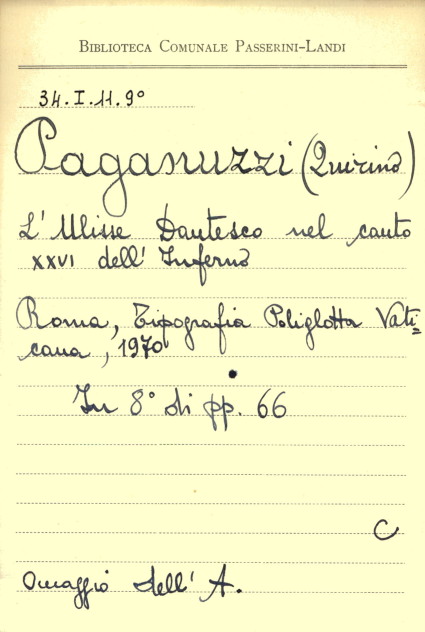 BIBLIOTECA COMUNALE PASSERINI-LANDI
34.I.11.9°
Paganuzzi (Quirino)
L'Ulisse Dantesco nel canto
XXVI dell'Inferno
Roma, Tipografia Poliglotta Vati=
cana, 1970
In 8° di pp. 66
C
Omaggio dell'A.